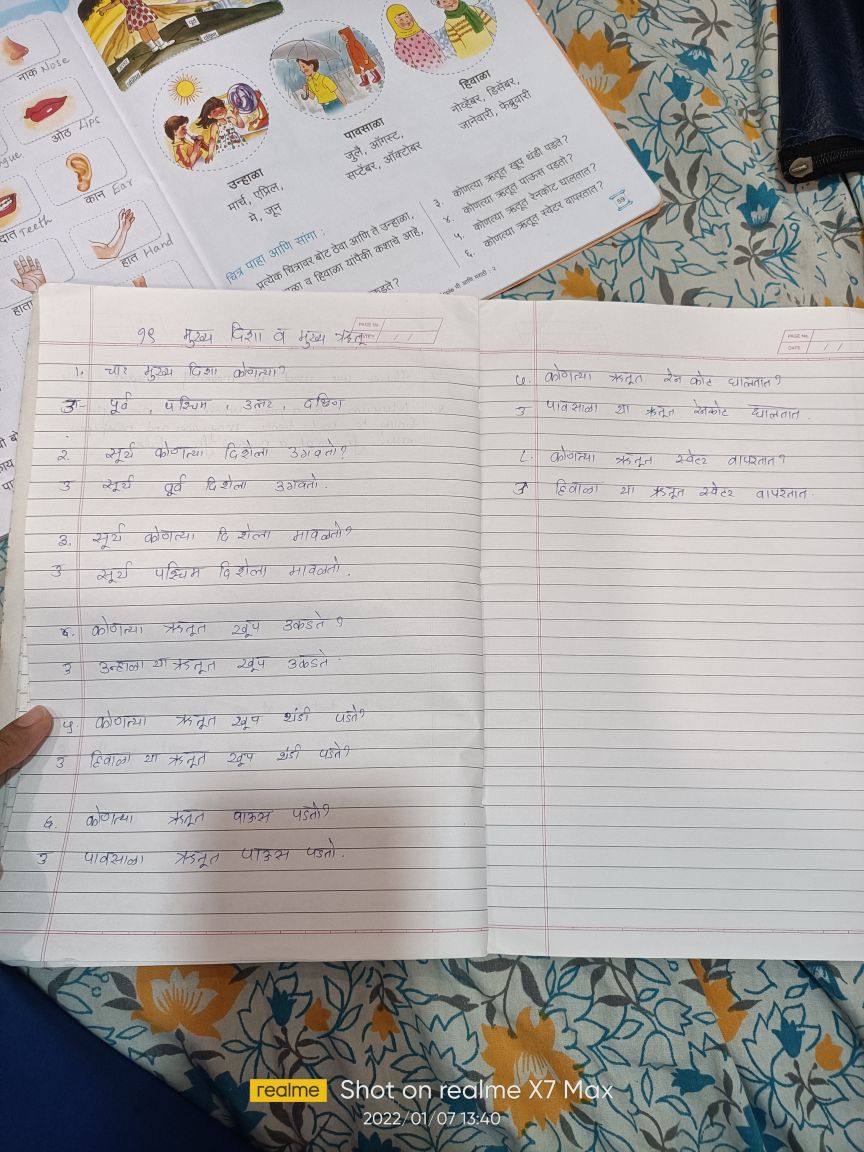 नाक Nose
ओठ Lips
कान Ear
दात Teeth
हात Hand
उन्हाळा
मार्च, एप्रिल,
मे, जून
पावसाळा
जुलै, ऑगस्ट,
सप्टेंबर, ऑक्टोबर
हिवाळा
नोव्हेंबर, डिसेंबर,
जानेवारी, फेब्रुवारी
चित्र पाहा आणि सांगा :
प्रत्येक चित्रावर बोट ठेवा आणि ते उन्हाळा,
व हिवाळा यापैकी कशाचे आहे,
३. कोणत्या ऋतूत खूप थंडी पडते?
४. कोणत्या ऋतूत पाऊस पडतो?
५. कोणत्या ऋतूत रेनकोट घालतात?
६. कोणत्या ऋतूत स्वेटर वापरतात?
59
PAGE No.
DATE
१९ मुख्य दिशा व मुख्य ऋतू
१. चार मुख्य दिशा कोणत्या?
उ- पूर्व , पश्चिम , उत्तर , दक्षिण
२. सूर्य कोणत्या दिशेला उगवतो?
उ सूर्य पूर्व दिशेला उगवतो.
३. सूर्य कोणत्या दिशेला मावळतो?
उ सूर्य पश्चिम दिशेला मावळतो.
४. कोणत्या ऋतूत खूप उकडते?
उ उन्हाळा या ऋतूत खूप उकडते.
५. कोणत्या ऋतूत खूप थंडी पडते?
उ हिवाळा या ऋतूत खूप थंडी पडते?
६. कोणत्या ऋतूत पाऊस पडतो?
उ पावसाळा ऋतूत पाऊस पडतो.
PAGE No.
DATE / /
७. कोणत्या ऋतूत रेनकोट घालतात?
उ पावसाळा या ऋतूत रेनकोट घालतात.
८. कोणत्या ऋतूत स्वेटर वापरतात?
उ हिवाळा या ऋतूत स्वेटर वापरतात.
realme Shot on realme X7 Max
2022/01/07 13:40